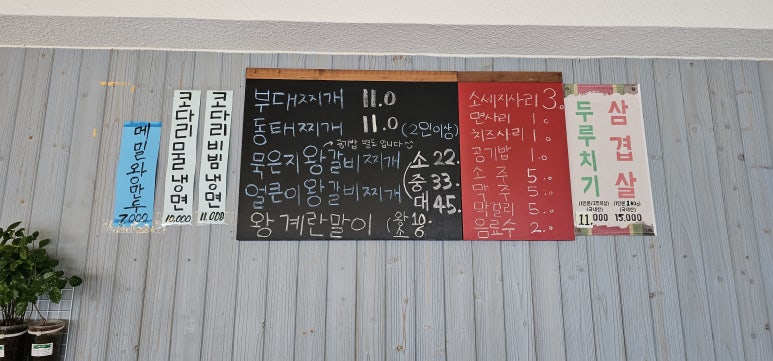 메밀왕만두
7.000
코다리물냉면
10.000
코다리비빔냉면
11.000
부대찌개 11.0
동태찌개 11.0 (2인이상)
공기밥 별도 입니다
묵은지왕갈비찌개 소 22.
얼큰이왕갈비찌개 중 33.
대 45.
왕계란말이 (왕 10.
소
소세지사리 3.0
면사리 1.0
치즈사리 1.0
공기밥 1.0
소주 5.0
맥주 5.0
막걸리 5.0
음료수 2.0
두루치기
(국내산)
11.000
삼겹살
(국내산)
15,000